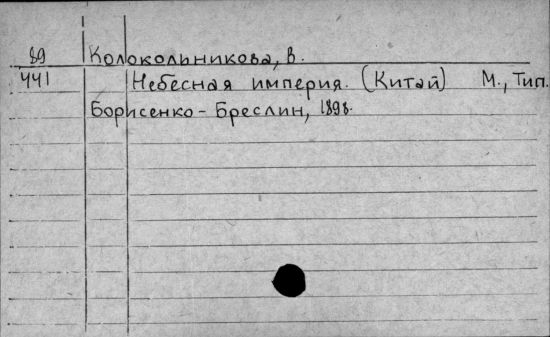 89 Колокольникова, В.
441 Небесная империя. (Китай) М., Тип.
Борисенко - Бреслин, 1898.